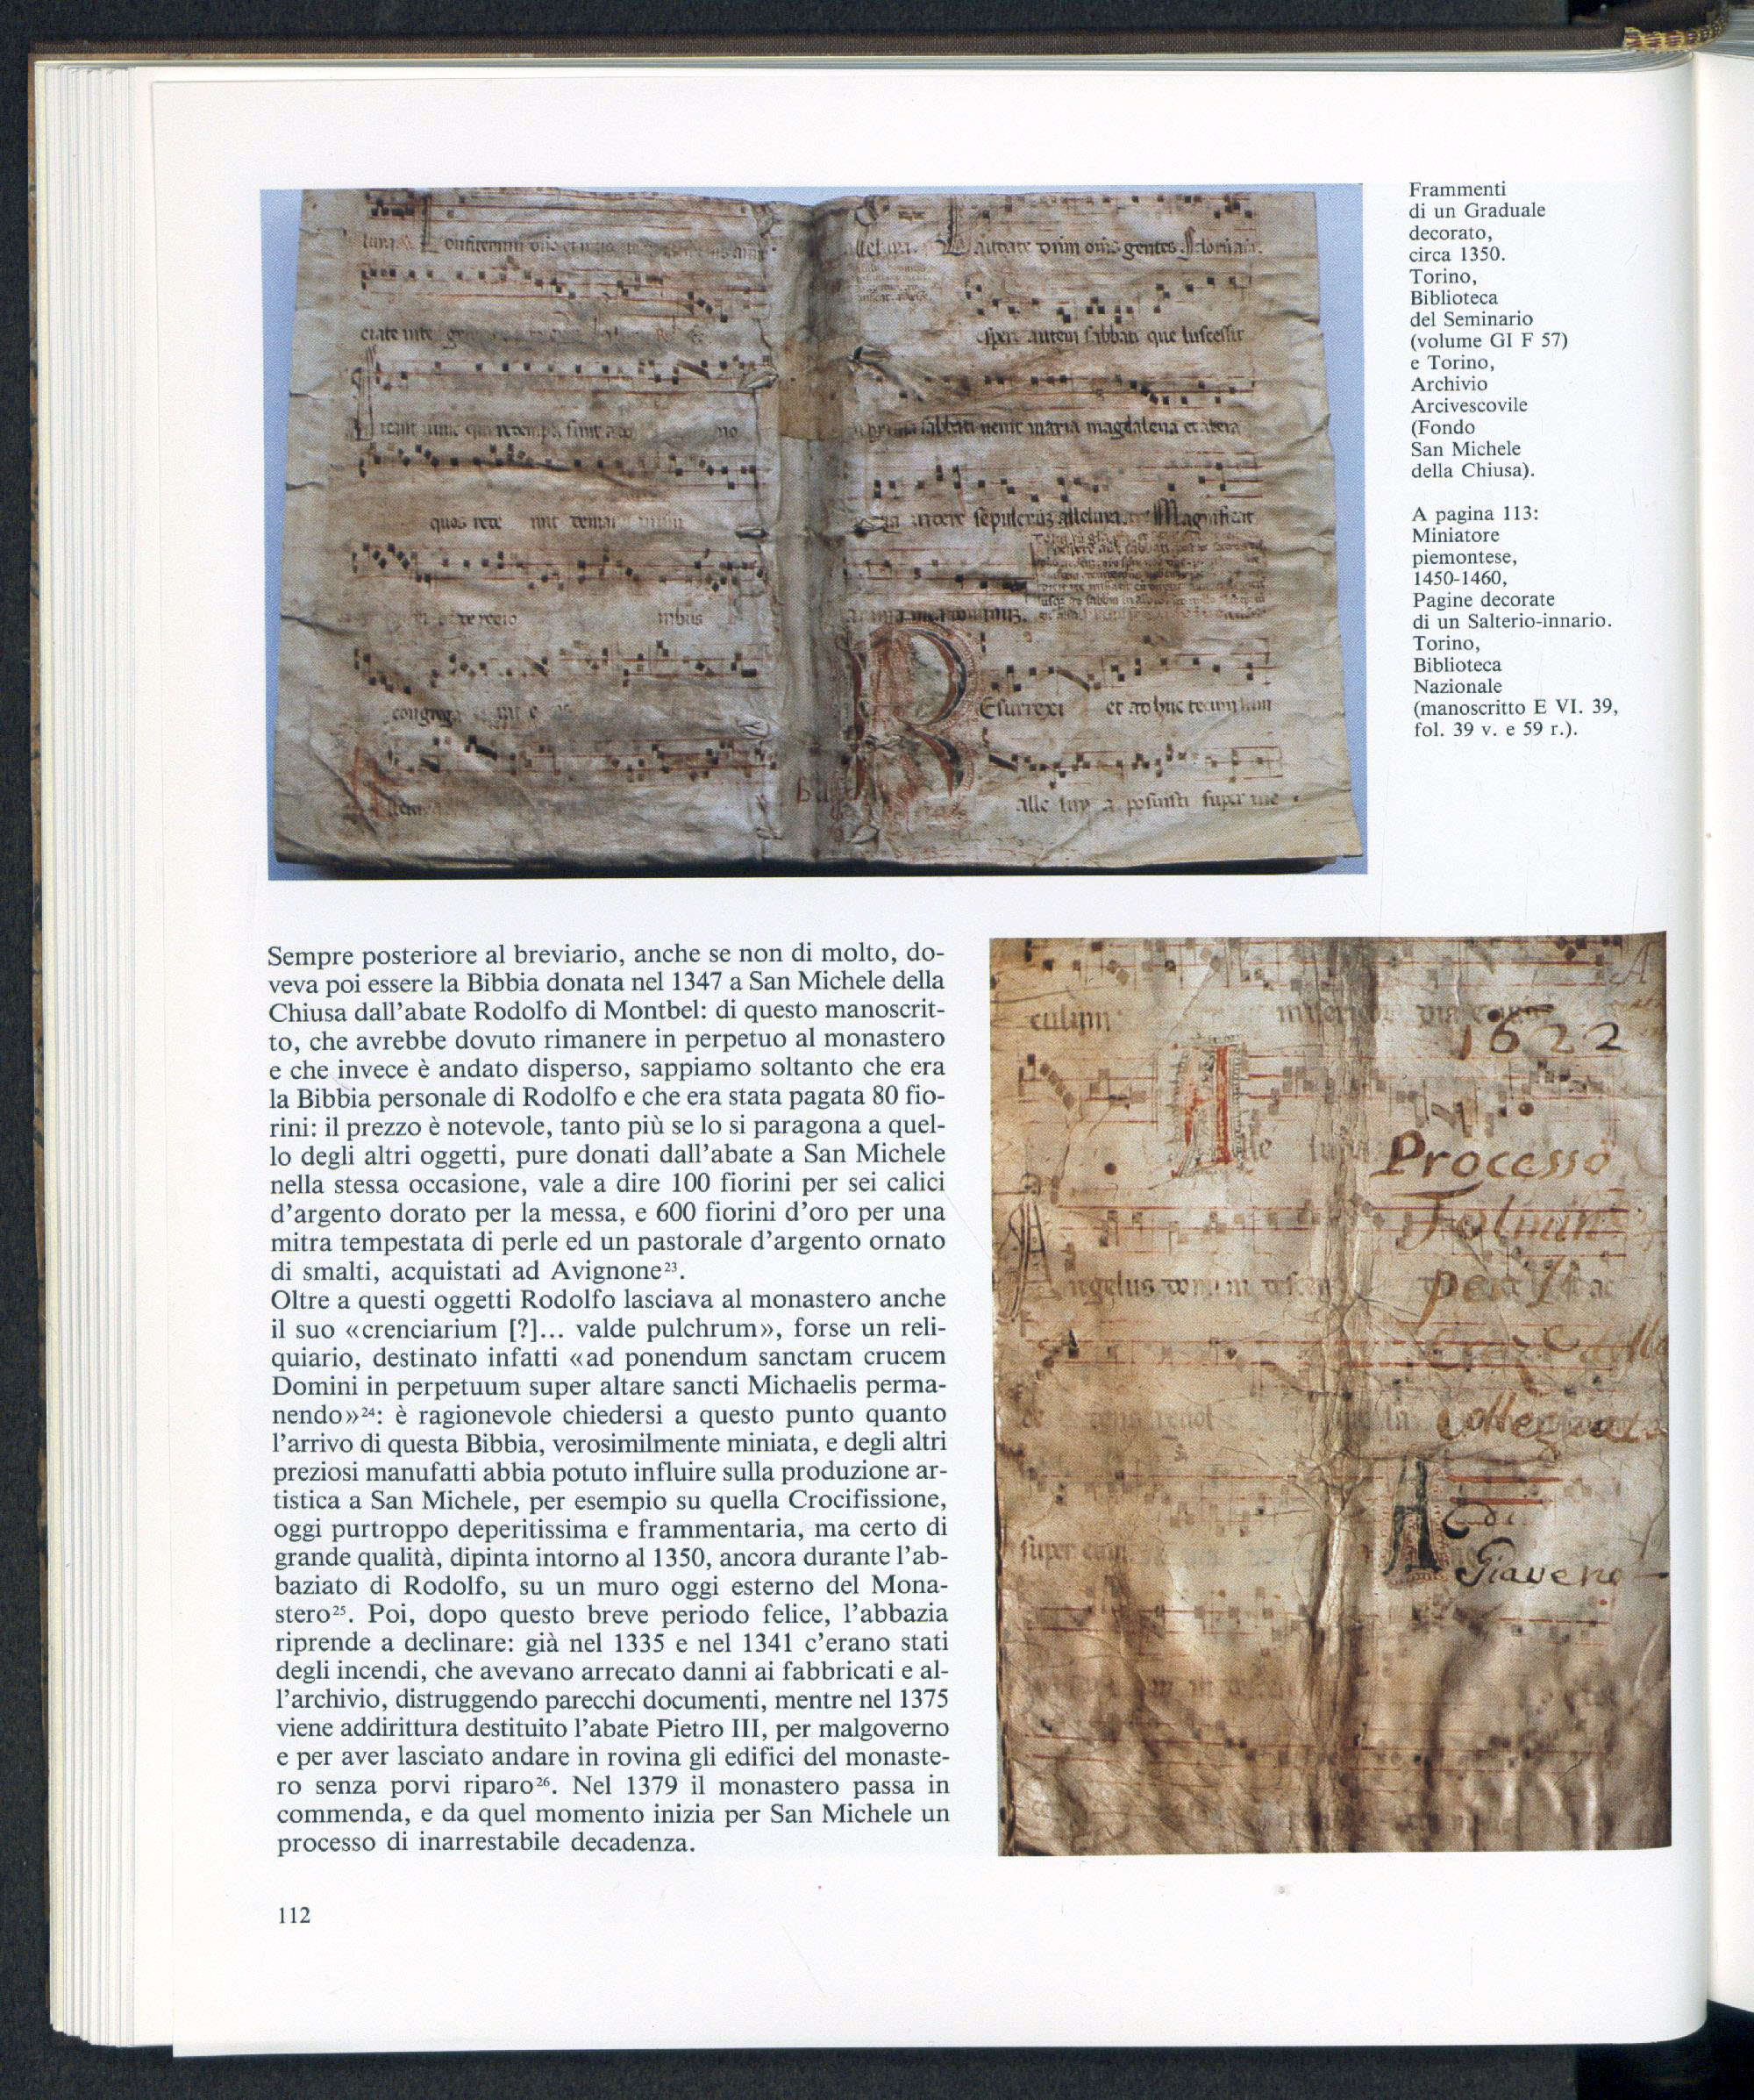 Frammenti
di un Graduale
decorato,
circa 1350.
Torino,
Biblioteca
del Seminario
(volume GI F 57)
e Torino,
Archivio
Arcivescovile
(Fondo
San Michele
della Chiusa).
A pagina 113:
Miniatore
piemontese,
1450-1460,
Pagine decorate
di un Salterio-innario.
Torino,
Biblioteca
Nazionale
(manoscritto E VI. 39,
fol. 39 v. e 59 r.).
gentes
sabbati que
maria magdalena et
alleluia Magnificat
Esurrexi et adhuc tecum sum
posuisti super me
Sempre posteriore al breviario, anche se non di molto, do-
veva poi essere la Bibbia donata nel 1347 a San Michele della
Chiusa dall'abate Rodolfo di Montbel: di questo manoscrit-
to, che avrebbe dovuto rimanere in perpetuo al monastero
e che invece è andato disperso, sappiamo soltanto che era
la Bibbia personale di Rodolfo e che era stata pagata 80 fio-
rini: il prezzo è notevole, tanto più se lo si paragona a quel-
lo degli altri oggetti, pure donati dall'abate a San Michele
nella stessa occasione, vale a dire 100 fiorini per sei calici
d'argento dorato per la messa, e 600 fiorini d'oro per una
mitra tempestata di perle ed un pastorale d'argento ornato
di smalti, acquistati ad Avignone²³.
Oltre a questi oggetti Rodolfo lasciava al monastero anche
il suo «crenciarium [?]... valde pulchrum», forse un reli-
quiario, destinato infatti «ad ponendum sanctam crucem
Domini in perpetuum super altare sancti Michaelis perma-
nendo»²⁴: è ragionevole chiedersi a questo punto quanto
l'arrivo di questa Bibbia, verosimilmente miniata, e degli altri
preziosi manufatti abbia potuto influire sulla produzione ar-
tistica a San Michele, per esempio su quella Crocifissione,
oggi purtroppo deperitissima e frammentaria, ma certo di
grande qualità, dipinta intorno al 1350, ancora durante l'ab-
baziato di Rodolfo, su un muro oggi esterno del Mona-
stero²⁵. Poi, dopo questo breve periodo felice, l'abbazia
riprende a declinare: già nel 1335 e nel 1341 c'erano stati
degli incendi, che avevano arrecato danni ai fabbricati e al-
l'archivio, distruggendo parecchi documenti, mentre nel 1375
viene addirittura destituito l'abate Pietro III, per malgoverno
e per aver lasciato andare in rovina gli edifici del monaste-
ro senza porvi riparo²⁶. Nel 1379 il monastero passa in
commenda, e da quel momento inizia per San Michele un
processo di inarrestabile decadenza.
culum
1622
Processo
Angelus
Collegiata
super eum
di
Giaveno
112